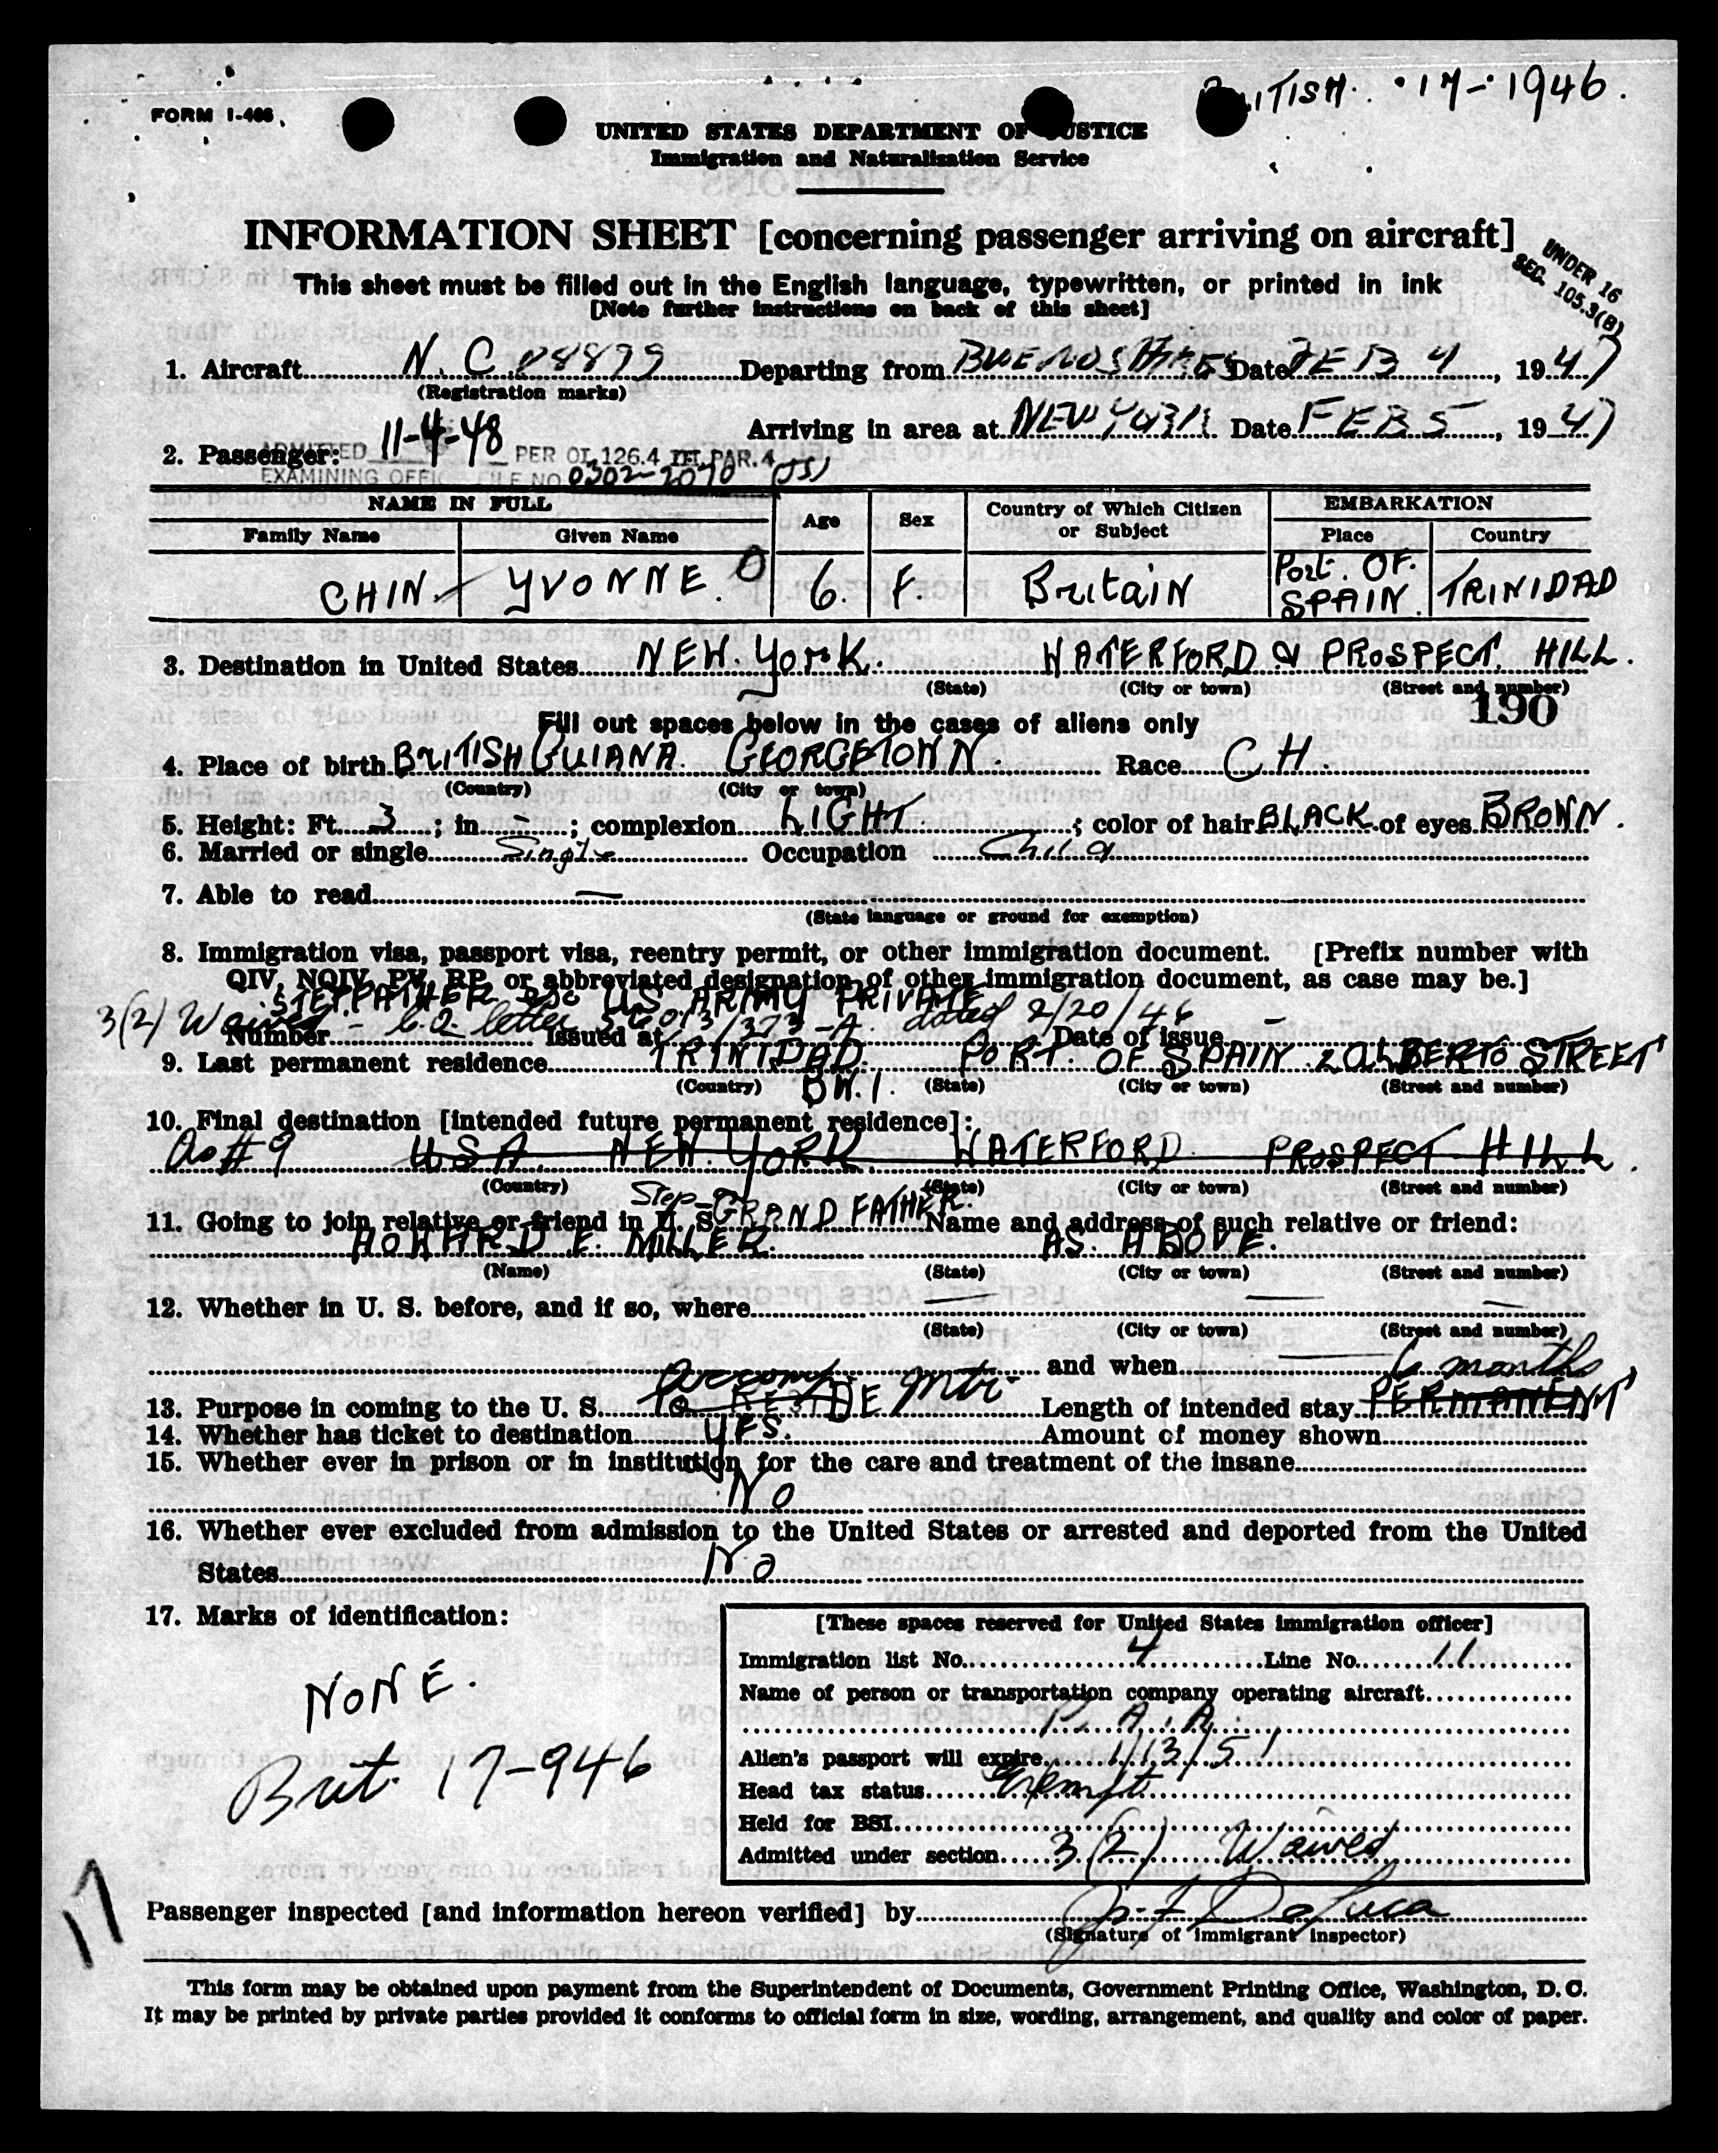 FORM I-466
BRITISH. 17-1946.
UNITED STATES DEPARTMENT OF JUSTICE
Immigration and Naturalization Service
INFORMATION SHEET [concerning passenger arriving on aircraft]
UNDER 16
SEC. 105.3(B)
This sheet must be filled out in the English language, typewritten, or printed in ink
[Note further instructions on back of this sheet]
1. Aircraft N.C. 88899 Departing from BUENOS AIRES Date FEB 4, 1947
(Registration marks)
Arriving in area at NEW YORK Date FEB 5, 1947
2. Passenger:
ADMITTED 11-4-48 PER OI 126.4 PAR. 4
EXAMINING OFFI FILE NO 0302-2070
NAME IN FULL Age Sex Country of Which Citizen or Subject EMBARKATION
Family Name Given Name Place Country
CHIN. YVONNE. O 6. F. Britain Port. OF. SPAIN. TRINIDAD
3. Destination in United States NEW. York. WATERFORD PROSPECT. HILL.
(State) (City or town) (Street and number)
190
Fill out spaces below in the cases of aliens only
4. Place of birth BRITISH GUIANA. GEORGETOWN. Race CH.
(Country) (City or town)
5. Height: Ft. 3; in. -; complexion LIGHT; color of hair BLACK of eyes BROWN.
6. Married or single Single Occupation Child
7. Able to read —
(State language or ground for exemption)
8. Immigration visa, passport visa, reentry permit, or other immigration document. [Prefix number with
QIV, NQIV, PV, RP, or abbreviated designation of other immigration document, as case may be.]
STEPFATHER US ARMY PRIVATE
3(2) Waived - C.O. letter /373-A. dated 2/20/46
Number Issued at Date of issue -
9. Last permanent residence TRINIDAD. PORT. OF SPAIN. STREET
(Country) B.W.I. (State) (City or town) (Street and number)
10. Final destination [intended future permanent residence]:
As #9 USA. NEW. YORK WATERFORD. PROSPECT HILL.
(Country) (State) (City or town) (Street and number)
11. Going to join relative or friend in U. S. Step-GRANDFATHER. Name and address of such relative or friend:
HOWARD E. MILLER. AS. ABOVE.
(Name) (State) (City or town) (Street and number)
12. Whether in U. S. before, and if so, where — — —
(State) (City or town) (Street and number)
and when —
Accomp Mtr 6 months
13. Purpose in coming to the U. S. TO RESIDE Length of intended stay PERMANENT
14. Whether has ticket to destination YES. Amount of money shown
15. Whether ever in prison or in institution for the care and treatment of the insane
No
16. Whether ever excluded from admission to the United States or arrested and deported from the United
States No
17. Marks of identification:
NONE.
Brit. 17-946
[These spaces reserved for United States immigration officer]
Immigration list No. 4 Line No. 11
Name of person or transportation company operating aircraft
P. A. A.
Alien's passport will expire 1/13/51
Head tax status Exempt
Held for BSI
Admitted under section 3(2) Waived
17
Passenger inspected [and information hereon verified] by
(Signature of immigrant inspector)
This form may be obtained upon payment from the Superintendent of Documents, Government Printing Office, Washington, D. C.
It may be printed by private parties provided it conforms to official form in size, wording, arrangement, and quality and color of paper.